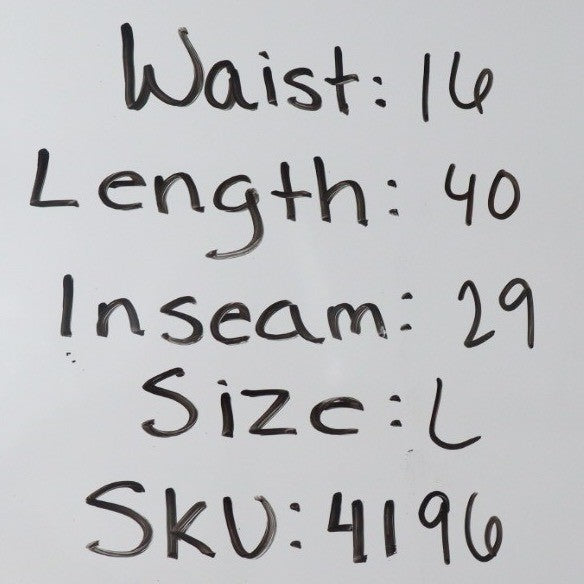 Waist: 16
Length: 40
Inseam: 29
Size: L
SKU: 4196